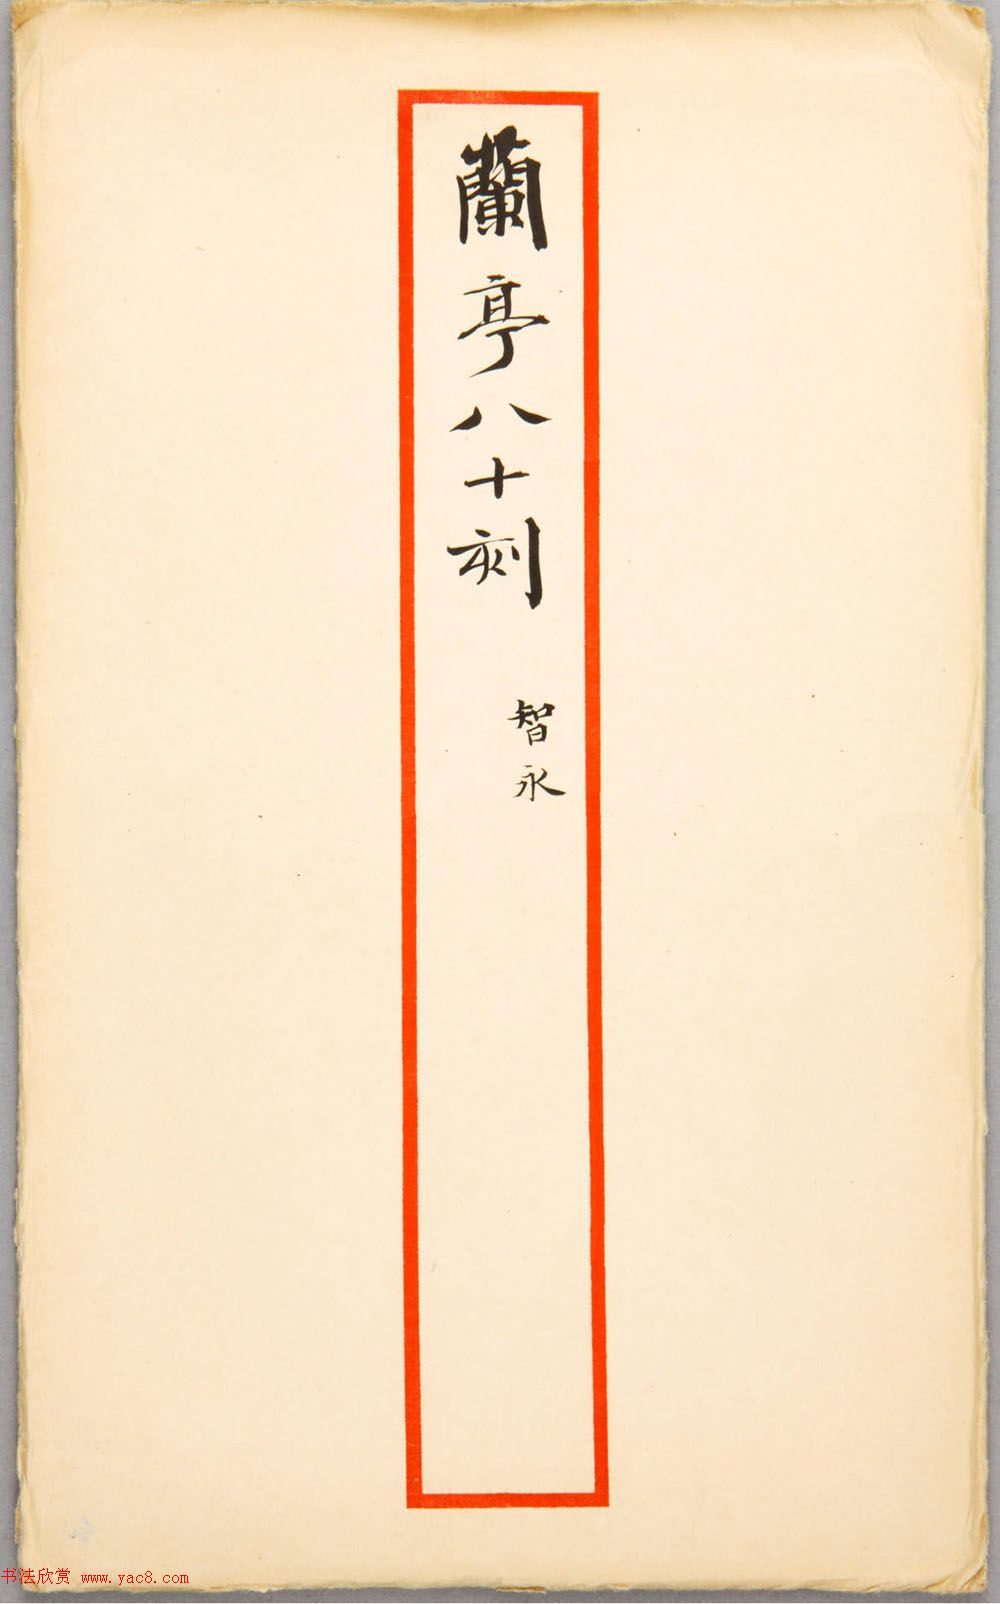 蘭亭八十刻
智永
书法欣赏 www.yac8.com